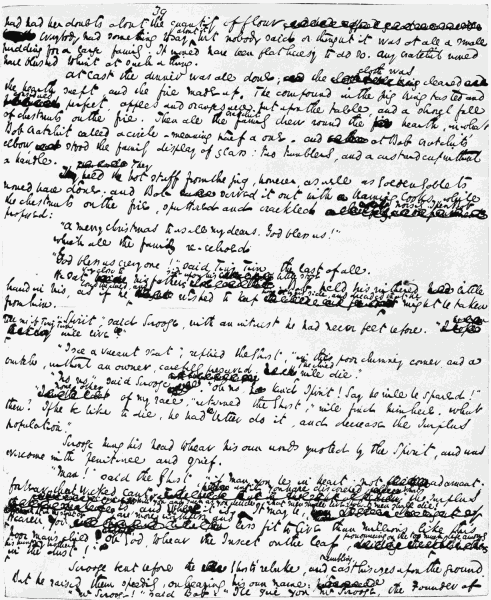 39
had had her doubts about the quantity of flour
Everybody had something to say about it, but nobody said or thought it was at all a small
pudding for a large family. It would have been flat heresy to do so. Any Cratchit would
have blushed to hint at such a thing.
At last the dinner was all done, the cloth was cleared
the hearth swept, and the fire made up. The compound in the jug being tasted and
considered perfect, apples and oranges were put upon the table, and a shovel full
of chestnuts on the fire. Then all the Cratchit family drew round the hearth, in what
Bob Cratchit called a circle, meaning half a one; and at Bob Cratchit's
elbow stood the family display of glass: two tumblers, and a custard cup without
a handle.
They held the hot stuff from the jug, however, as well as golden goblets
would have done; and Bob served it out with beaming looks, while
the chestnuts on the fire sputtered and crackled noisily. Then Bob
proposed:
"A merry Christmas to us all my dears. God bless us!"
Which all the family re-echoed.
"God bless us every one!" said Tiny Tim, the last of all.
He sat very close to his father's side, upon his little stool. Bob held his withered little
hand in his, as if he loved the child, and wished to keep him by his side, and dreaded that he might be taken
from him.
"Spirit," said Scrooge, with an interest he had never felt before, "tell me
if Tiny Tim will live."
"I see a vacant seat", replied the Ghost, "in the poor chimney corner, and a
crutch without an owner, carefully preserved. the child will die."
"No, no," said Scrooge. "oh no kind Spirit! Say he will be spared!"
of my race," returned the Ghost, "will find him here. What
then? If he be like to die, he had better do it, and decrease the surplus
population."
Scrooge hung his head to hear his own words quoted by the Spirit, and was
overcome with penitence and grief.
"Man!" said the Ghost, "if man you be in heart, not adamant,
forbear that wicked cant until you have discovered What the surplus
is, and Where it is. Will you decide what men shall live, what men shall die?
less fit to live than millions like this
poor man's child. Oh God! to hear the Insect on the leaf pronouncing on the too much life among
his hungry brothers in the dust!"
Scrooge bent before the Ghost's rebuke, and trembling cast his eyes upon the ground.
But he raised them speedily, on hearing his own name.
"Mr Scrooge!" said Bob; "I'll give you Mr Scrooge, the Founder of